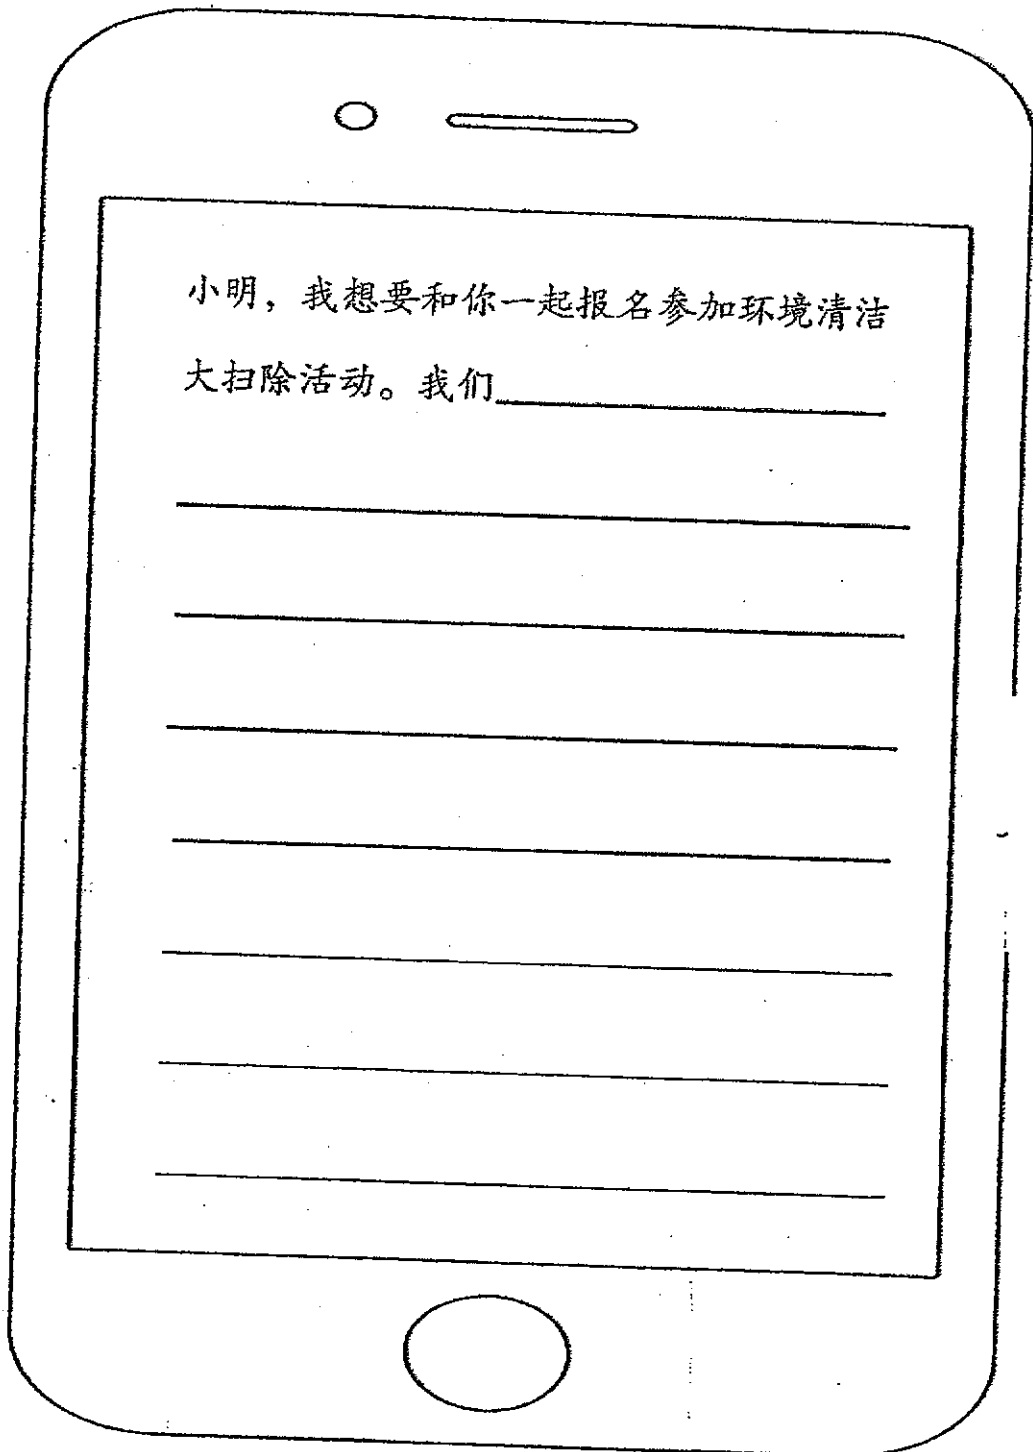 小明，我想要和你一起报名参加环境清洁
大扫除活动。我们